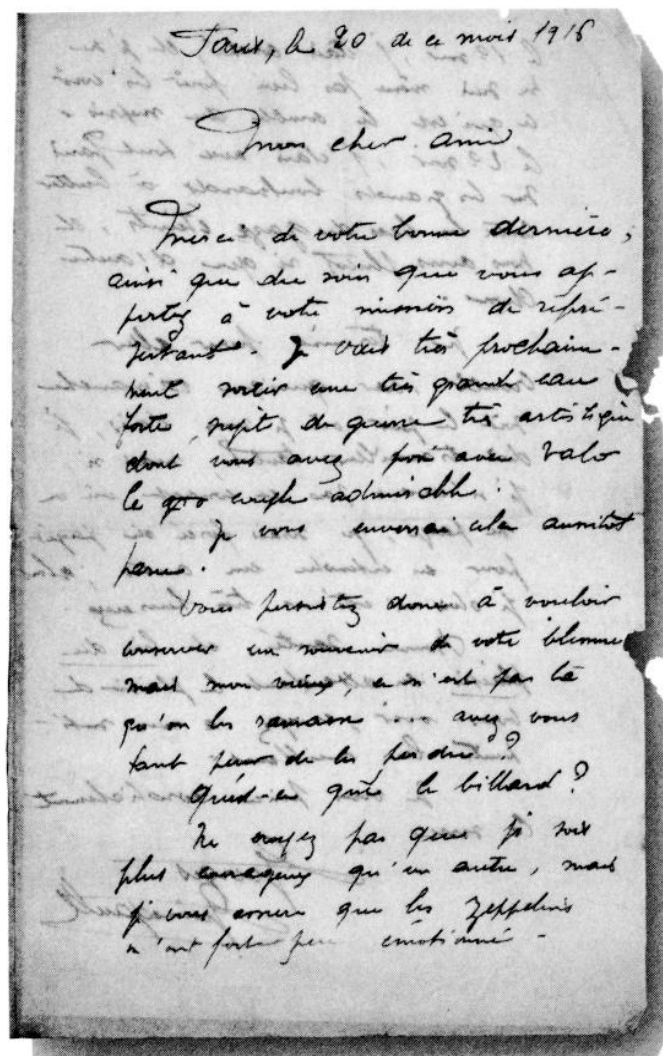 Paris, le 20 de ce mois 1916
Mon cher ami
Merci de votre bonne dernière,
ainsi que du soin que vous ap-
portez à votre mission de repré-
sentant. Je vais très prochaine-
ment sortir une très grande eau
forte, sujet de guerre très artistique
dont vous avez
le admirable.
Je vous enverrai cela aussitôt
parue.
Vous persistez donc à vouloir
conserver un souvenir de votre
mais mon vieux, ce n'est pas là
qu'on les ramasse ... avez vous
tant peur de les perdre ?
Quid-en le billard ?
Ne croyez pas que je sois
plus courageux qu'un autre, mais
je vous assure que les Zeppelins
m'ont fort peu émotionné -